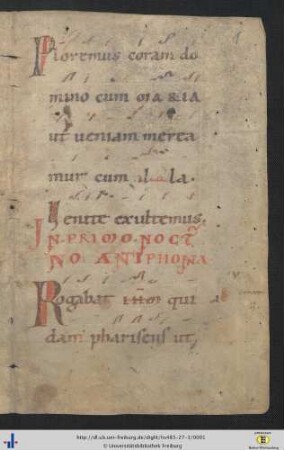 Ploremus coram do
mino cum maria
ut ueniam merea
mur cum illa la
uenite exultemus,
IN PRIMO NOCTR
NO ANTIPHONA
Rogabat ihm qui
dam phariseus ut,
http://dl.ub.uni-freiburg.de/diglit/hs483-27-3/0001
© Universitätsbibliothek Freiburg